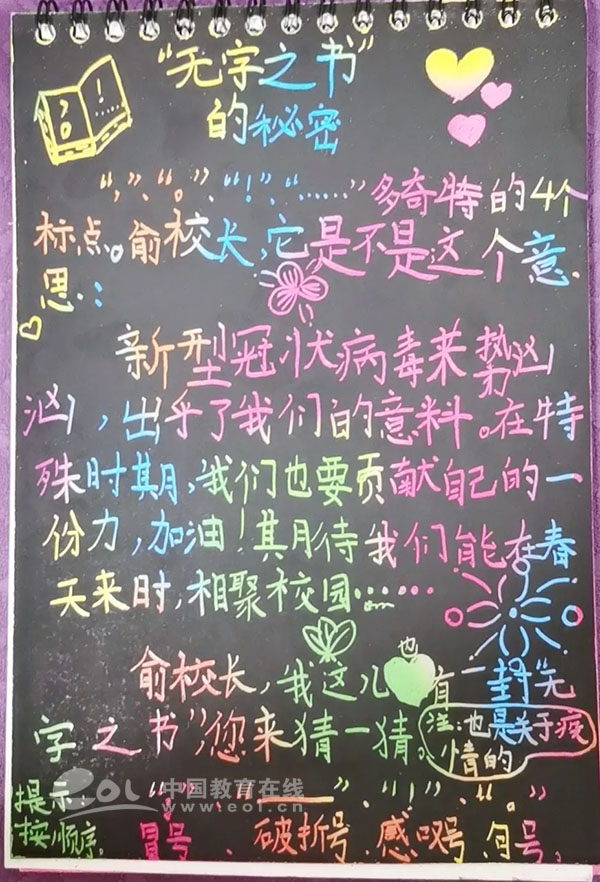 “无字之书”
的秘密
“，”、“。”、“！”、“……”多奇特的4个
标点。俞校长，它是不是这个意
思：
新型冠状病毒来势汹
汹，出乎了我们的意料。在特
殊时期，我们也要贡献自己的一
份力，加油！期待我们能在春
天来时，相聚校园……
俞校长，我这儿也有一封“无
字之书”，您来猜一猜。
注：也是关于疫
情的
提示： “：”、“——”、“！”、“。”
按顺序。 冒号、破折号、感叹号、句号。
中国教育在线
www.eol.cn